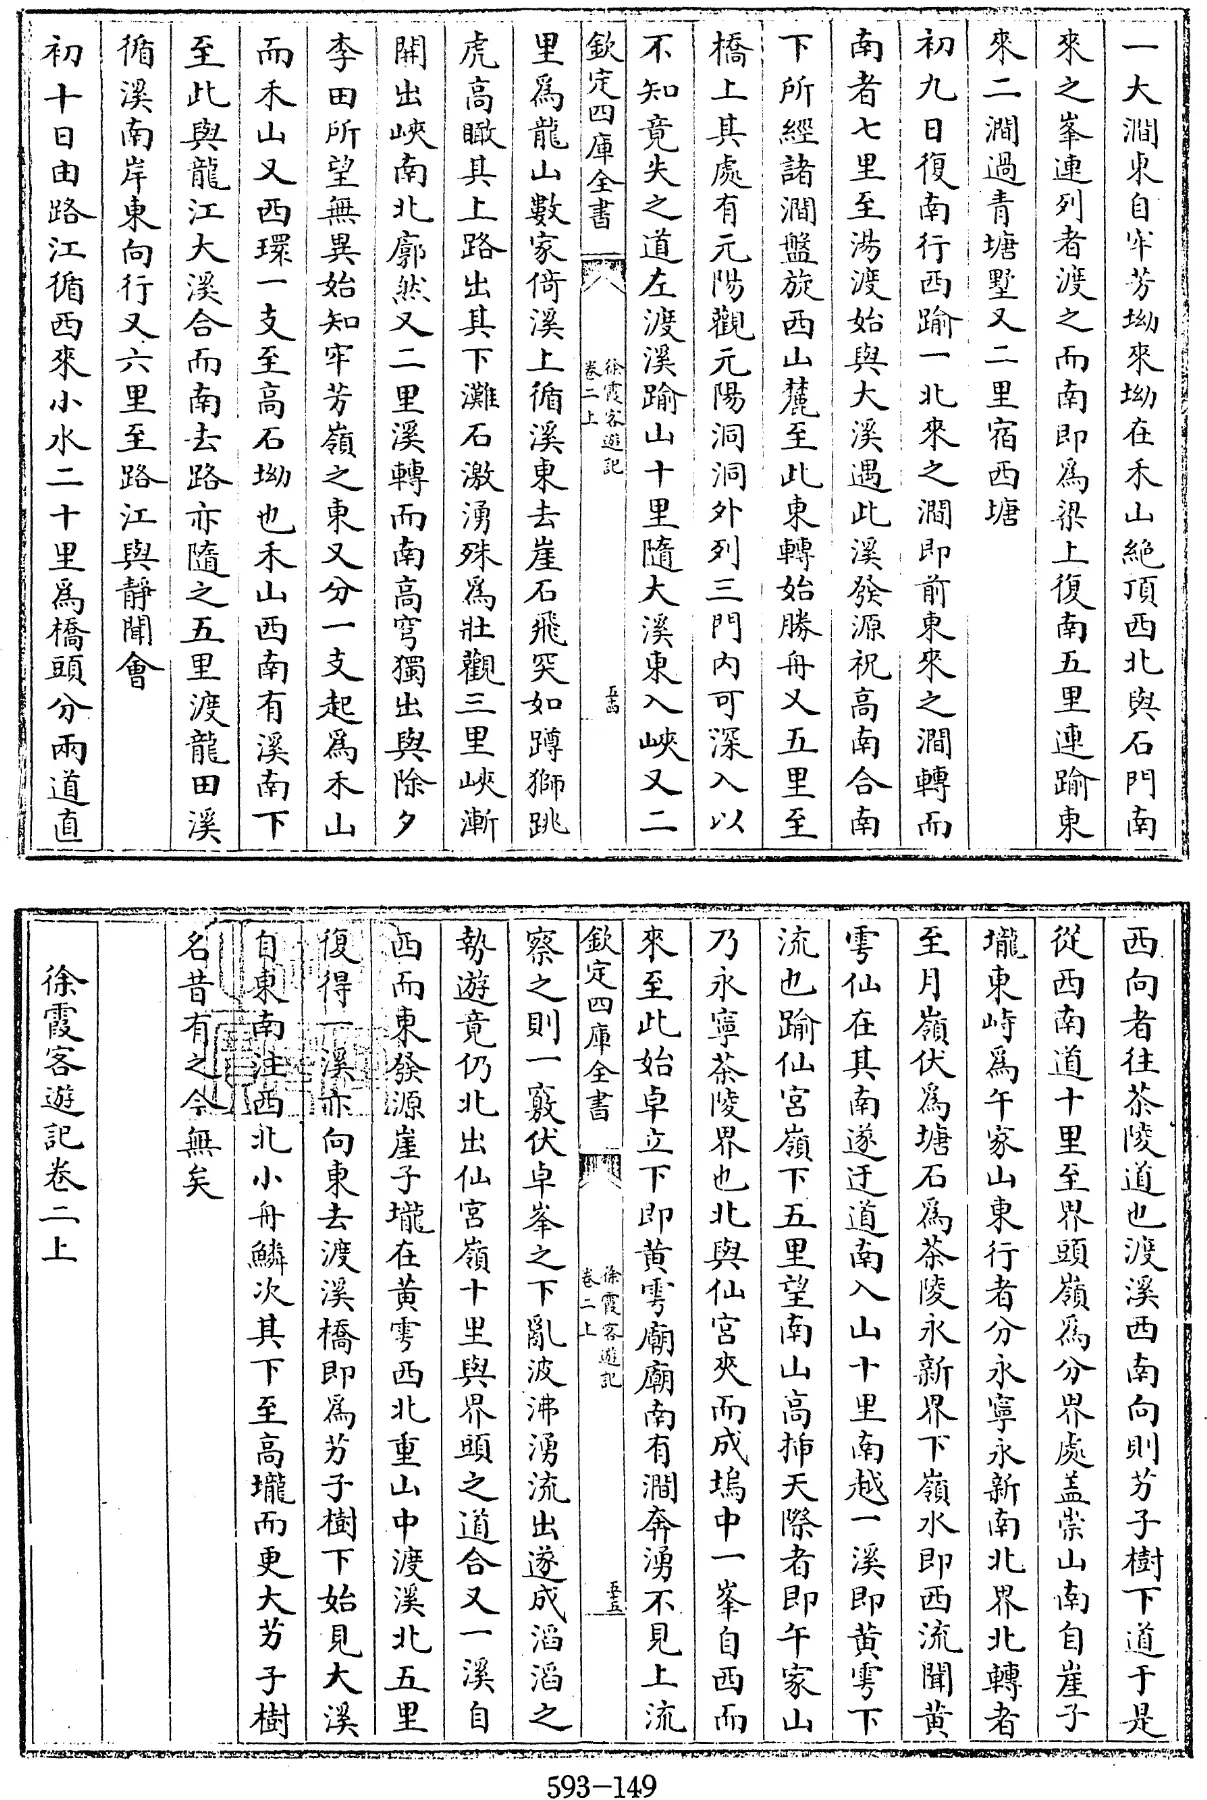 一大澗東自牢芳坳來坳在禾山絶頂西北與石門南
來之峯連列者渡之而南即爲梁上復南五里連踰東
來二澗過青塘墅又二里宿西塘
初九日復南行西踰一北來之澗即前東來之澗轉而
南者七里至湯渡始與大溪遇此溪發源祝高南合南
下所經諸澗盤旋西山麓至此東轉始勝舟又五里至
橋上其處有元陽觀元陽洞洞外列三門内可深入以
不知竟失之道左渡溪踰山十里隨大溪東入峽又二
欽定四庫全書
徐霞客遊記
卷二上
五十四
里爲龍山數家倚溪上循溪東去崖石飛突如蹲獅跳
虎高瞰其上路出其下灘石激湧殊爲壯觀三里峽漸
開出峽南北廓然又二里溪轉而南高穹獨出與除夕
李田所望無異始知牢芳嶺之東又分一支起爲禾山
而禾山又西環一支至高石坳也禾山西南有溪南下
至此與龍江大溪合而南去路亦隨之五里渡龍田溪
循溪南岸東向行又六里至路江與靜聞會
初十日由路江循西來小水二十里爲橋頭分兩道直
西向者往茶陵道也渡溪西南向則芳子樹下道于是
從西南道十里至界頭嶺爲分界處盖崇山南自崖子
壠東峙爲午家山東行者分永寧永新南北界北轉者
至月嶺伏爲塘石爲茶陵永新界下嶺水即西流聞黄
雩仙在其南遂迂道南入山十里南越一溪即黄雩下
流也踰仙宮嶺下五里望南山高揷天際者即午家山
乃永寧茶陵界也北與仙宮夾而成塢中一峯自西而
來至此始卓立下即黄雩廟廟南有澗奔湧不見上流
欽定四庫全書
徐霞客遊記
卷二上
五十五
察之則一竅伏卓峯之下亂波沸湧流出遂成滔滔之
勢遊竟仍北出仙宮嶺十里與界頭之道合又一溪自
西而東發源崖子壠在黄雩西北重山中渡溪北五里
復得一溪亦向東去渡溪橋即爲芳子樹下始見大溪
自東南注西北小舟鱗次其下至高壠而更大芳子樹
名昔有之今無矣
徐霞客遊記卷二上
593-149